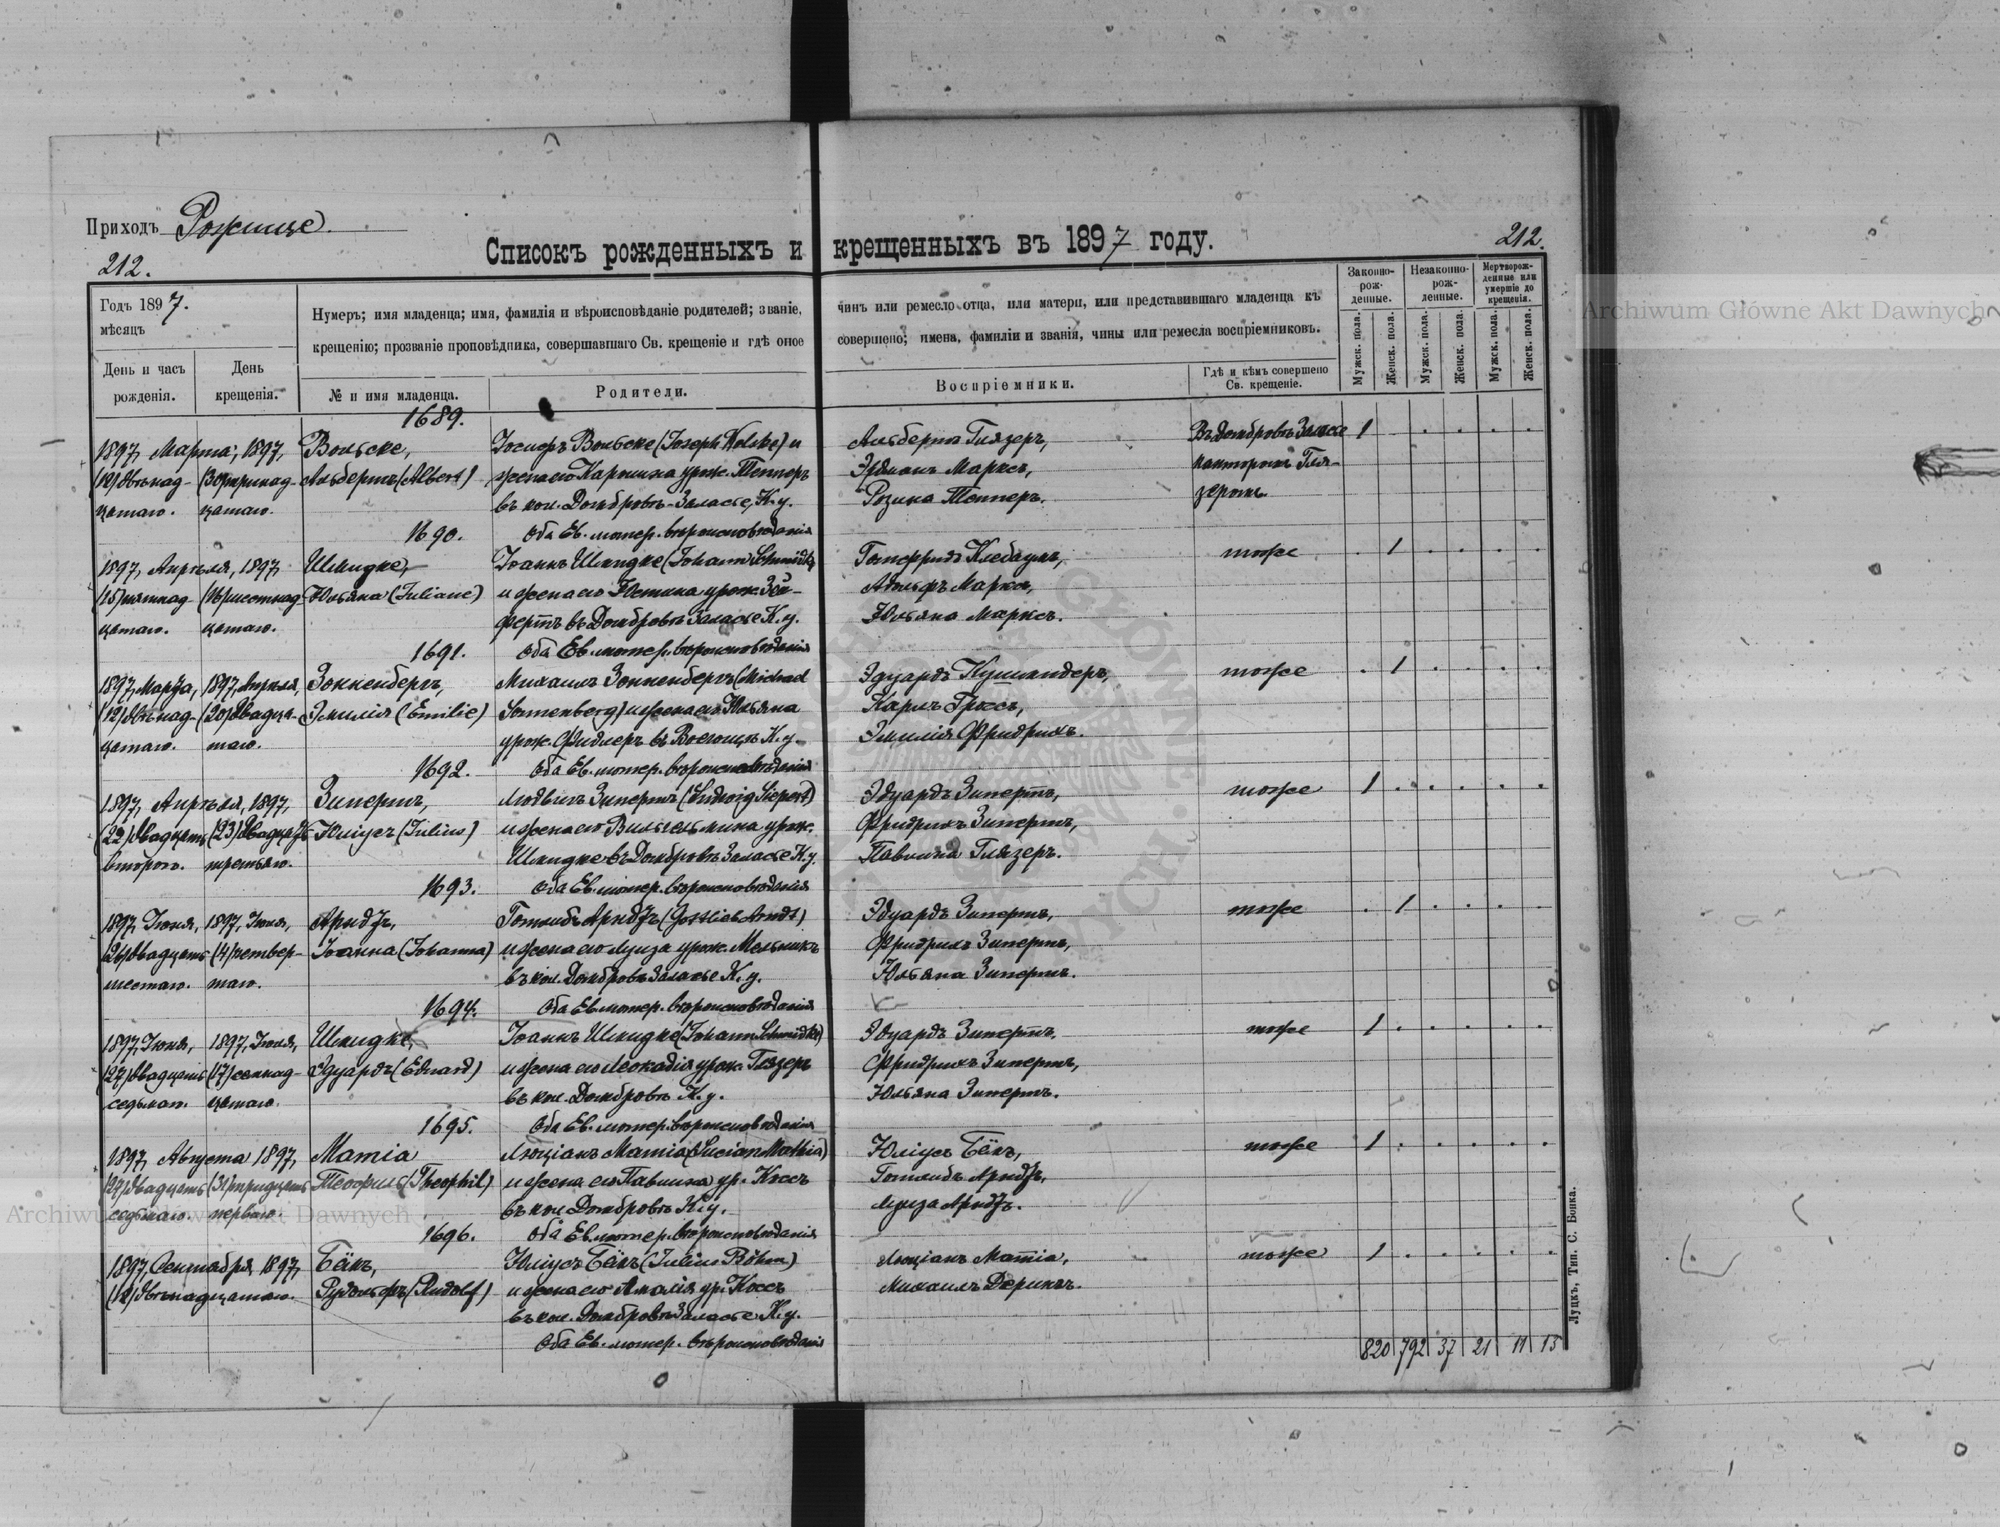 Приходъ Рожище.
Списокъ рожденныхъ и крещенныхъ въ 1897 году.
212.
212.
Годъ 1897.
мѣсяцъ
День и часъ рожденія.
День крещенія.
Нумеръ; имя младенца; имя, фамилія и вѣроисповѣданіе родителей; званіе, чинъ или ремесло отца, или матери, или представившаго младенца къ
крещенію; прозваніе проповѣдника, совершавшаго Св. крещеніе и гдѣ оное совершено; имена, фамиліи и званія, чины или ремесла воспріемниковъ.
№ и имя младенца.
Родители.
Воспріемники.
Гдѣ и кѣмъ совершено Св. крещеніе.
Законно-рож-денные.
Незаконно-рож-денные.
Мертворож-денные или умершіе до крещенія.
Мужск. пола.
Женск. пола.
Мужск. пола.
Женск. пола.
Мужск. пола.
Женск. пола.
1689.
1897, Марта, 1897,
(12) двѣнад-
цатаго.
(30) тринад-
цатаго.
Вольске,
Альбертъ (Albert)
Іосифъ Вольске (Joseph Wolske) и
жена его Каролина урож. Тепперъ
въ кол. Домбровъ-Заласье, К. у.
оба Ев. лютер. вѣроисповѣданія
Альбертъ Глязеръ,
Эрдманъ Марксъ,
Розина Тепперъ.
Въ Домбровъ Заласье
канторомъ Гля-
зеромъ.
1
1690.
1897, Апрѣля, 1897,
(15) пятнад-
цатаго.
(16) шестнад-
цатаго.
Шмидке,
Юльяна (Juliane)
Іоаннъ Шмидке (Johann Schmidke)
и жена его Юстина урож. Зей-
фертъ въ Домбровъ Заласье К. у.
оба Ев. лютер. вѣроисповѣданія
Готфридъ Клебаумъ,
Адольфъ Марксъ,
Юльяна Марксъ.
тоже
1
1691.
1897, Марта,
(12) двѣнад-
цатаго.
1897, Апрѣля,
(20) двадца-
таго.
Зонненбергъ,
Эмилія (Emilie)
Михаилъ Зонненбергъ (Michael
Sonnenberg) и жена его Юльяна
урож. Фидлеръ въ К. у.
оба Ев. лютер. вѣроисповѣданія
Эдуардъ
Карлъ Гроссъ,
Эмилія Фридрихъ.
тоже
1
1692.
1897, Апрѣля, 1897,
(22) двадцать
второго.
(23) двадцать
третьяго.
Зипертъ,
Юліусъ (Julius)
Людвигъ Зипертъ (Ludwig Siepert)
и жена его Вильгельмина урож.
Шмидке въ Домбровъ Заласье К. у.
оба Ев. лютер. вѣроисповѣданія
Эдуардъ Зипертъ,
Фридрихъ Зипертъ,
Павлина Глязеръ.
тоже
1
1693.
1897, Іюня,
(26) двадцать
шестаго.
1897, Іюля,
(4) четвер-
таго.
Арндтъ,
Іоанна (Johanna)
Готлибъ Арндтъ (Gottlieb Arndt)
и жена его Луиза урож. Мельникъ
въ кол. Домбровъ Заласье К. у.
оба Ев. лютер. вѣроисповѣданія
Эдуардъ Зипертъ,
Фридрихъ Зипертъ,
Юльяна Зипертъ.
тоже
1
1694.
1897, Іюня,
(27) двадцать
седьмаго.
1897, Іюля,
(17) семнад-
цатаго.
Шмидке,
Эдуардъ (Eduard)
Іоаннъ Шмидке (Johann Schmidke)
и жена его Леокадія урож. Глязеръ
въ кол. Домбровъ К. у.
оба Ев. лютер. вѣроисповѣданія
Эдуардъ Зипертъ.
Фридрихъ Зипертъ,
Юльяна Зипертъ.
тоже
1
1695.
1897, Августа 1897,
(27) двадцать
седьмаго.
(31) тридцать
перваго.
Матіа
Теофилъ (Theophil)
Люціанъ Матіа (Lucian Mathia)
и жена его Павлина ур. Коссъ
въ кол. Домбровъ К. у.
оба Ев. лютер. вѣроисповѣданія
Юліусъ Бёмъ,
Готлибъ Арндтъ,
Луиза Арндтъ.
тоже
1
1696.
1897, Сентября, 1897,
(12) двѣнадцатаго.
Бёмъ,
Рудольфъ (Rudolf)
Юліусъ Бёмъ (Julius Böhm)
и жена его Амалія ур. Коссъ
въ кол. Домбровъ Заласье К. у.
оба Ев. лютер. вѣроисповѣданія
Люціанъ Матіа,
Михаилъ
тоже
1
820 792 37 21 11 13
Луцкъ, Тип. С. Бонка.
Archiwum Główne Akt Dawnych
Archiwum Główne Akt Dawnych